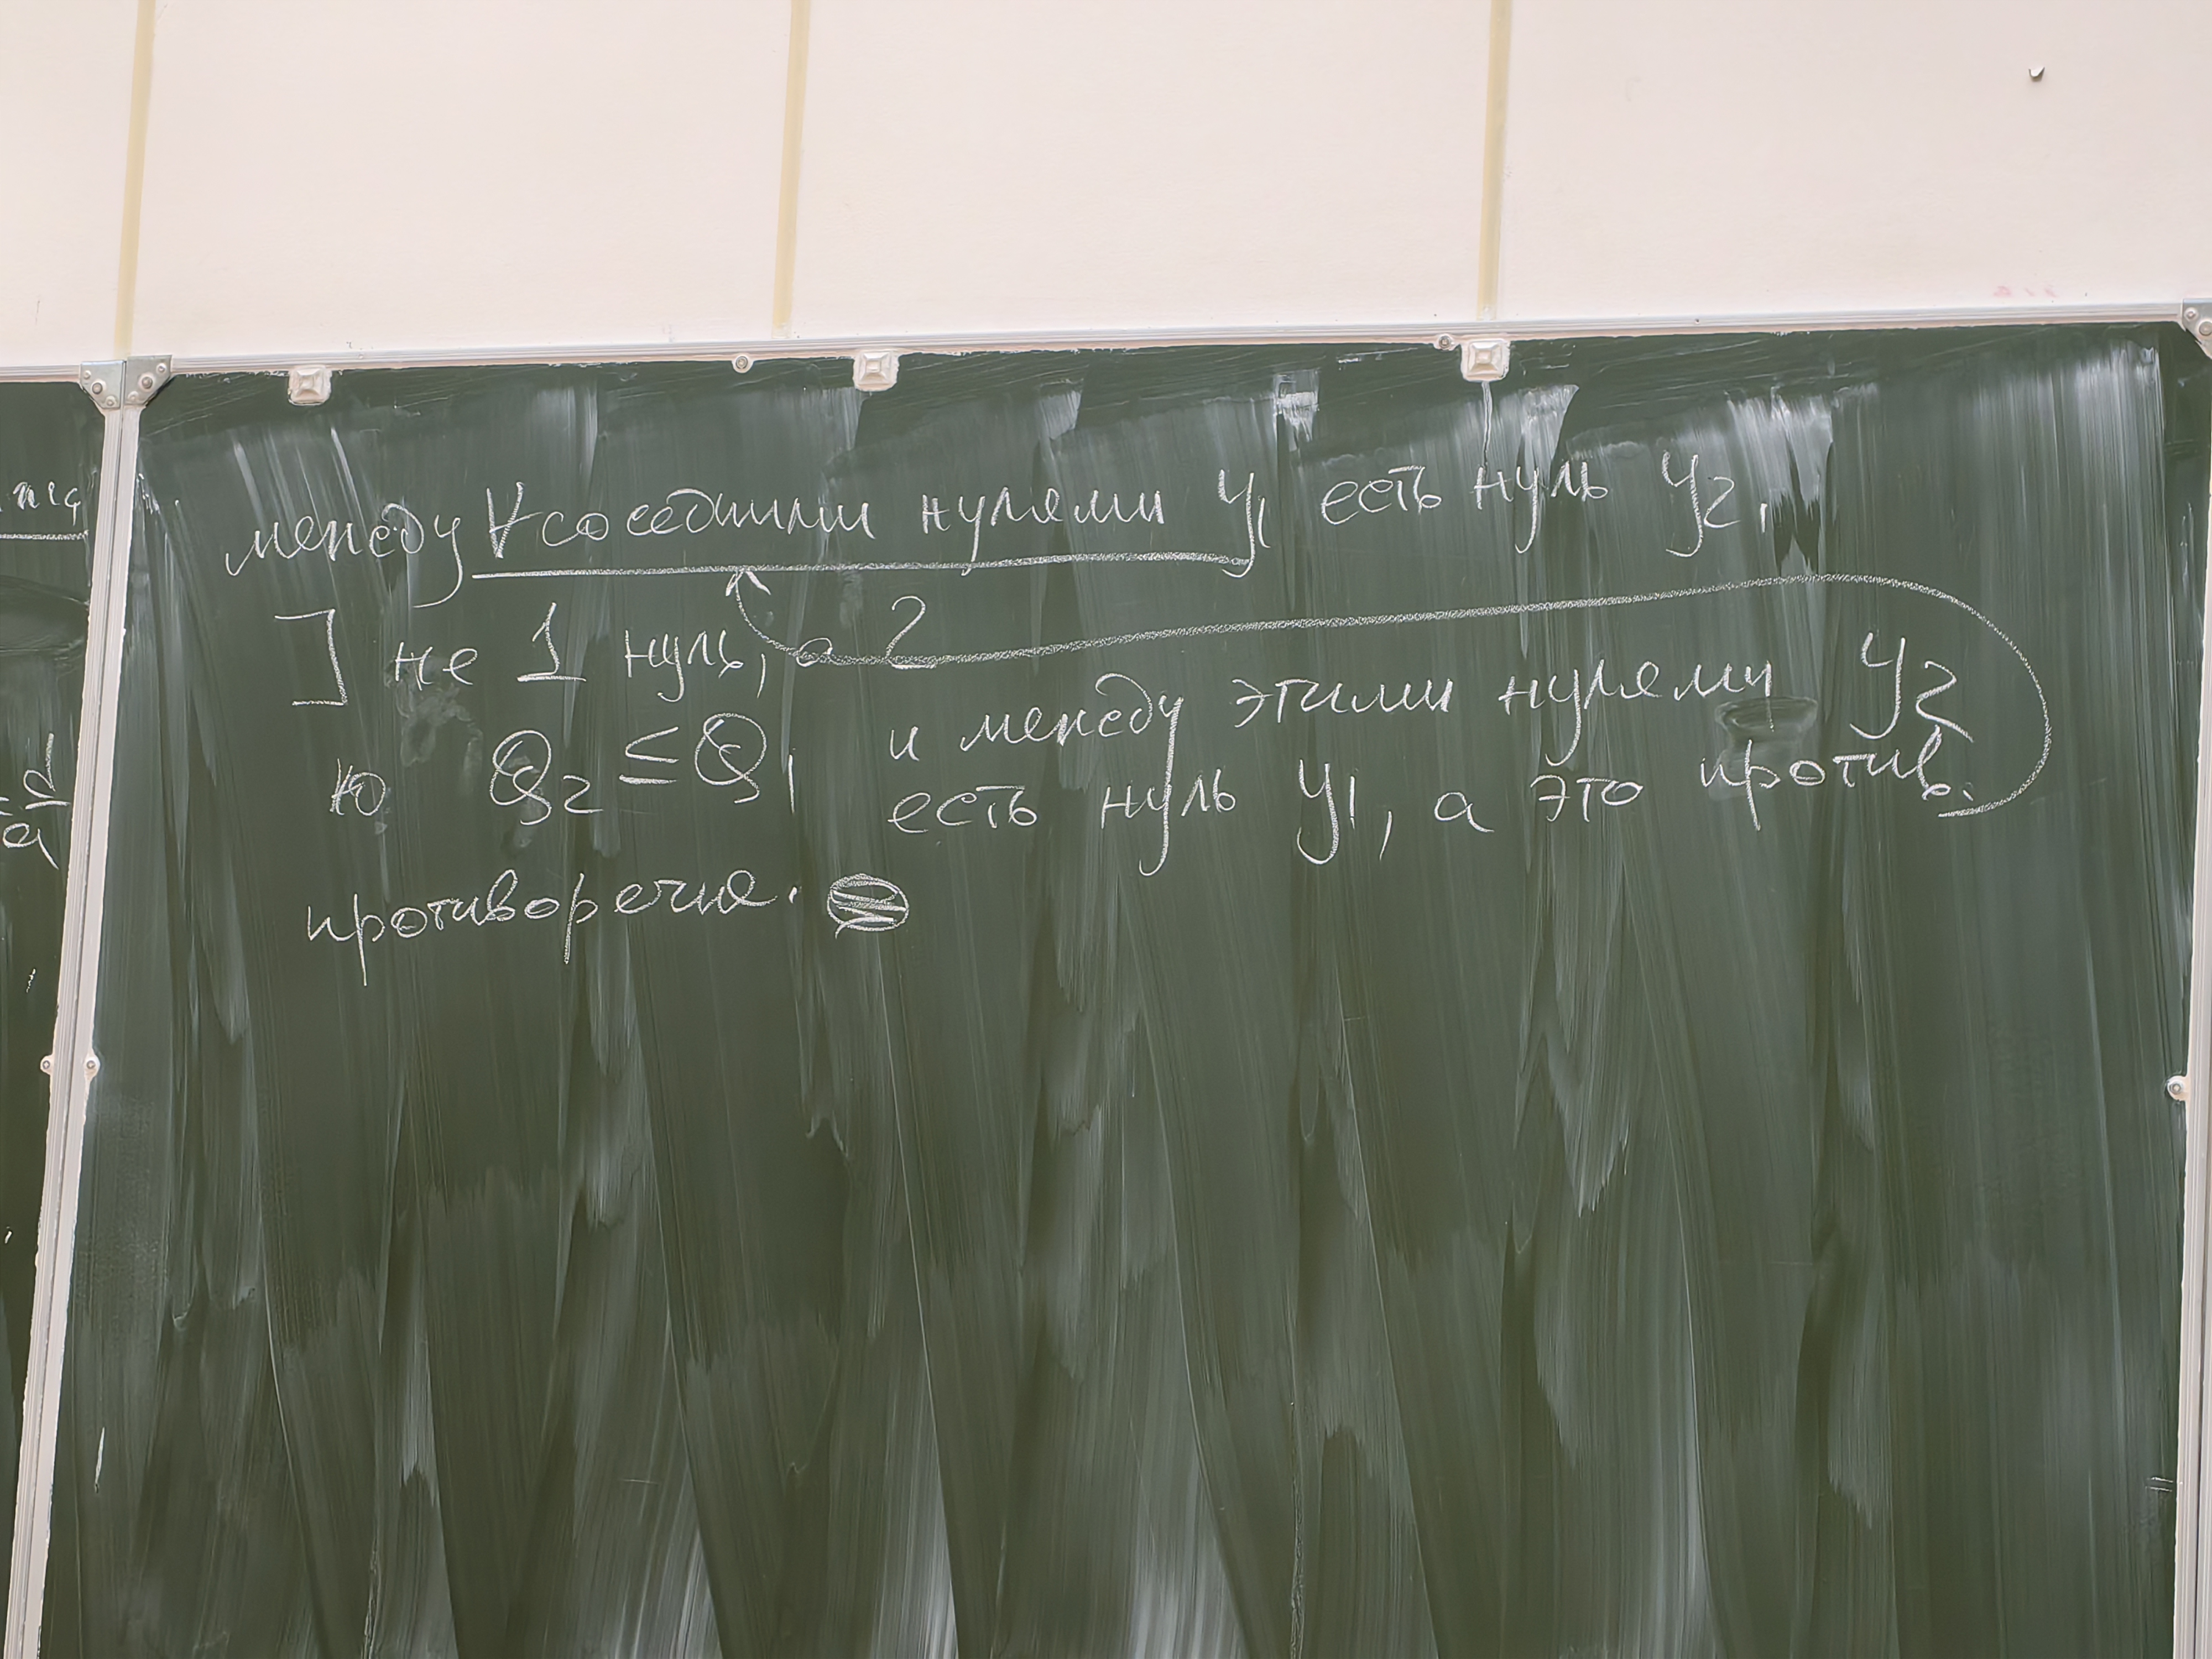 между ∀ соседними нулями y₁ есть нуль y₂.
] не 1 нуль, а 2
но Q₂ ≤ Q₁ и между этими нулями y₂
есть нуль y₁, а это против.
противоречие.